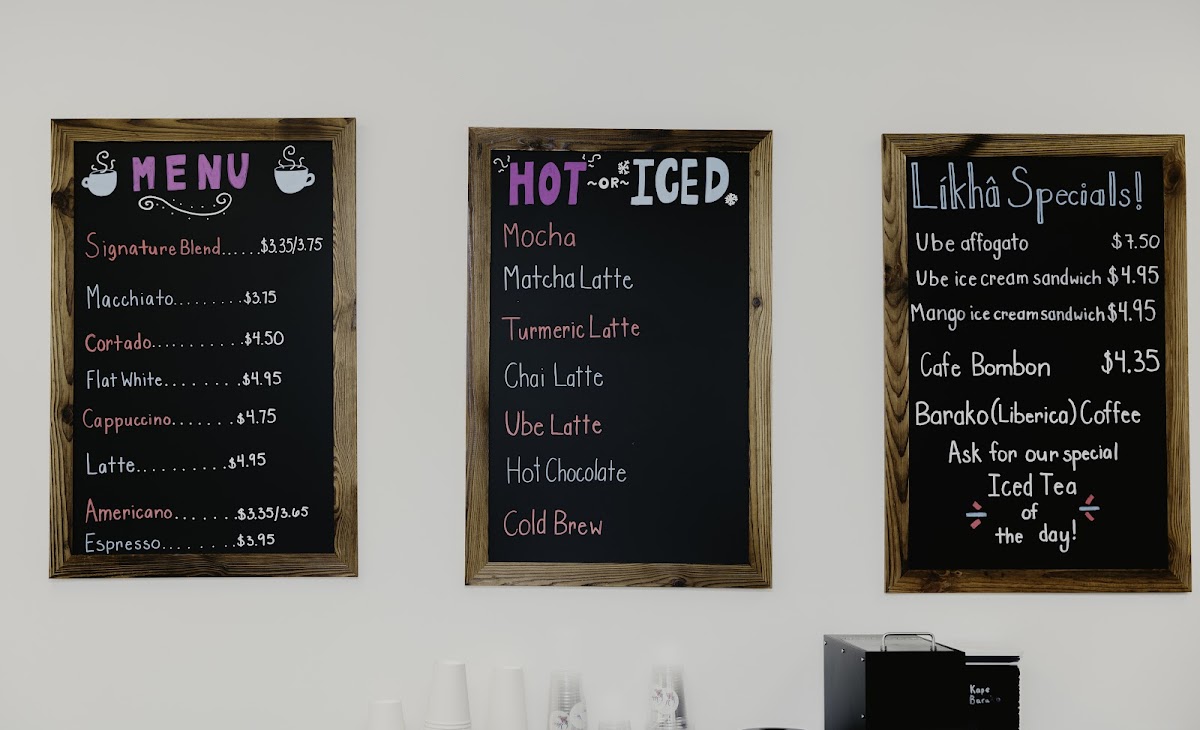 MENU
Signature Blend......$3.35/3.75
Macchiato.........$3.75
Cortado...........$4.50
Flat White........$4.95
Cappuccino.......$4.75
Latte..........$4.95
Americano.......$3.35/3.65
Espresso........$3.95
HOT ~OR~ ICED
Mocha
Matcha Latte
Turmeric Latte
Chai Latte
Ube Latte
Hot Chocolate
Cold Brew
Líkhâ Specials!
Ube affogato $7.50
Ube ice cream sandwich $4.95
Mango ice cream sandwich $4.95
Cafe Bombon $4.35
Barako (Liberica) Coffee
Ask for our special
Iced Tea
of
the day!
Kape